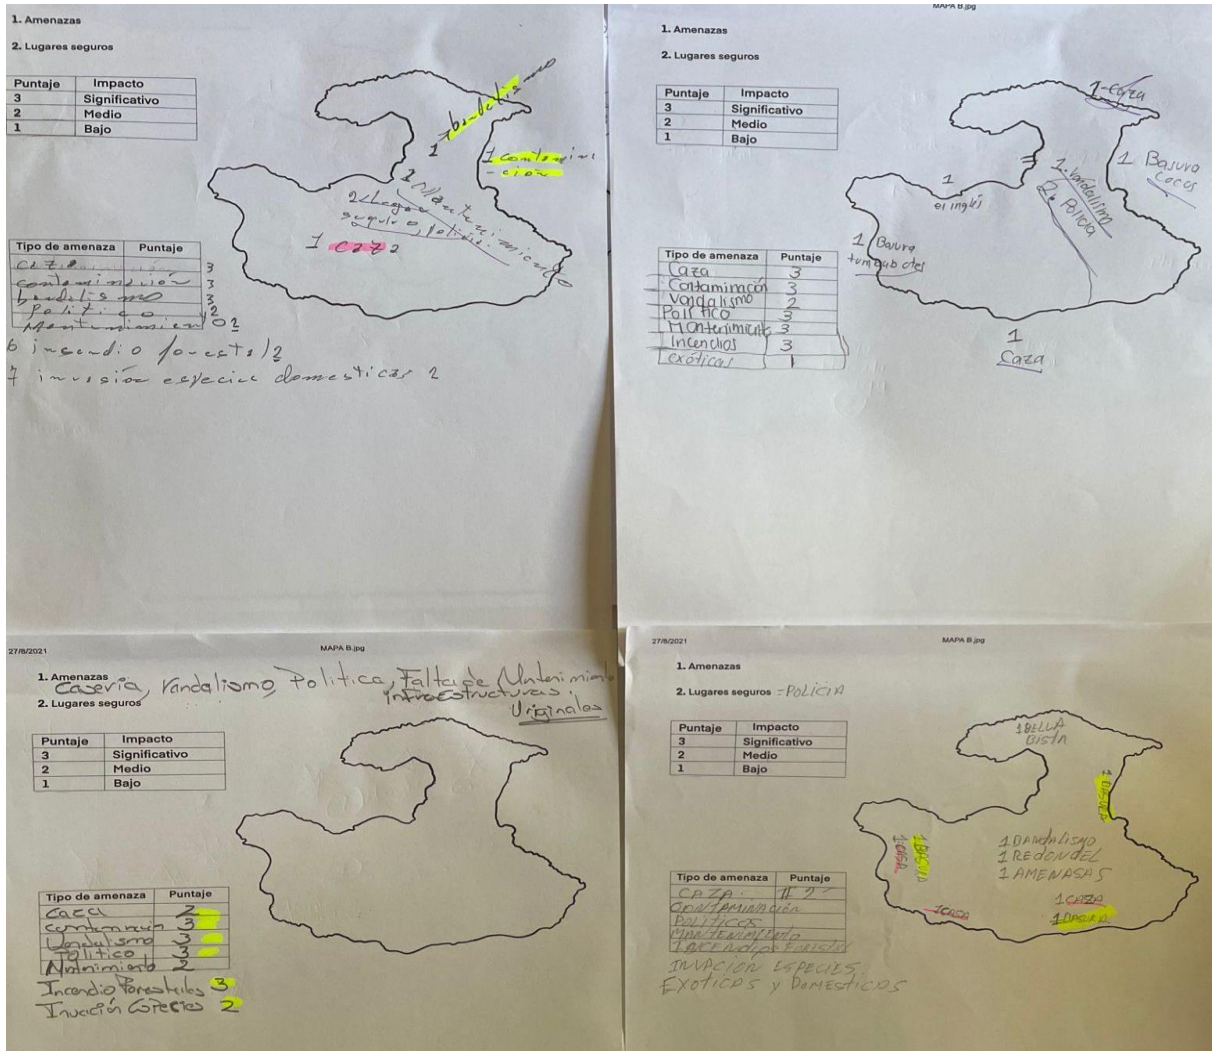 1. Amenazas
2. Lugares seguros
Puntaje Impacto
3 Significativo
2 Medio
1 Bajo
1 bandalismo
1 contamina
-cion
1 Mantenimiento
2 Lugar
seguro policia
1 caza
Tipo de amenaza Puntaje
caza 3
contaminación 3
bandalismo 3
politico 2
Mantenimiento 2
6 insendio forestal 2
7 invasión especies domesticas 2
MAPA B.jpg
1. Amenazas
2. Lugares seguros
Puntaje Impacto
3 Significativo
2 Medio
1 Bajo
1-caza
1 Basura
cocos
1. Vandalismo
2. Policia
1
el inglés
1 Basura
tumbabotes
1
Caza
Tipo de amenaza Puntaje
Caza 3
Contaminación 3
Vandalismo 2
Político 3
Mantenimiento 3
Incendios 3
exóticas 1
27/8/2021 MAPA B.jpg
1. Amenazas
Casería, Vandalismo, Politica, Falta de Mantenimiento
infraestructuras
Originales
2. Lugares seguros
Puntaje Impacto
3 Significativo
2 Medio
1 Bajo
Tipo de amenaza Puntaje
Caza 2
Contaminación 3
Vandalismo 3
Politico 3
Mantenimiento 2
Incendio Forestales 3
Invación Especies 2
27/8/2021 MAPA B.jpg
1. Amenazas
2. Lugares seguros =POLICIA
Puntaje Impacto
3 Significativo
2 Medio
1 Bajo
1 BELLA
BISTA
1 BASURA
1 CASA
1 BASURA
1 BANDALISMO
1 REDONDEL
1 AMENASAS
1 CASA
1 CAZA
1 BASURA
Tipo de amenaza Puntaje
CAZA. # 2
CONTAMINACIÓN
POLITICOS
MANTENIMIENTO
INCENDIOS FORESTALES
INVACION ESPECIES
EXOTICAS y DOMESTICAS